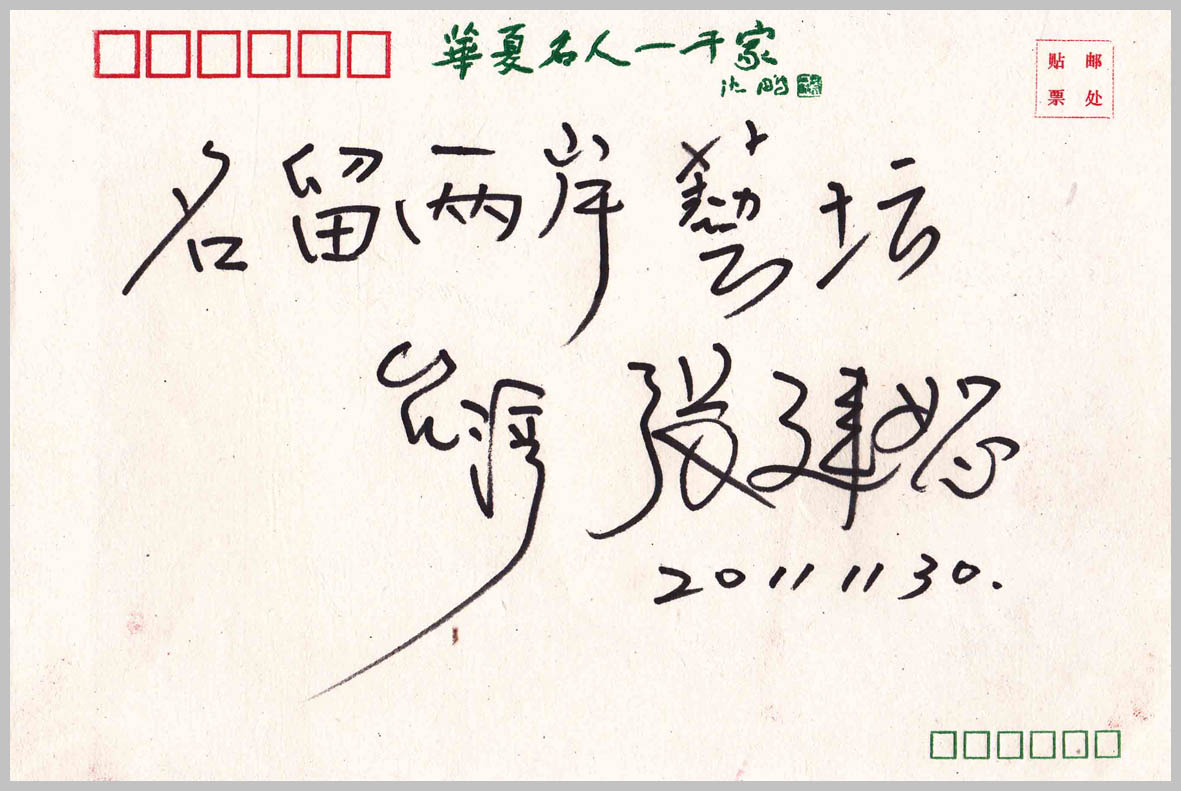 華夏名人一千家
沈鹏
贴邮
票处
名留两岸藝坛
台灣 張建
2011 11 30.